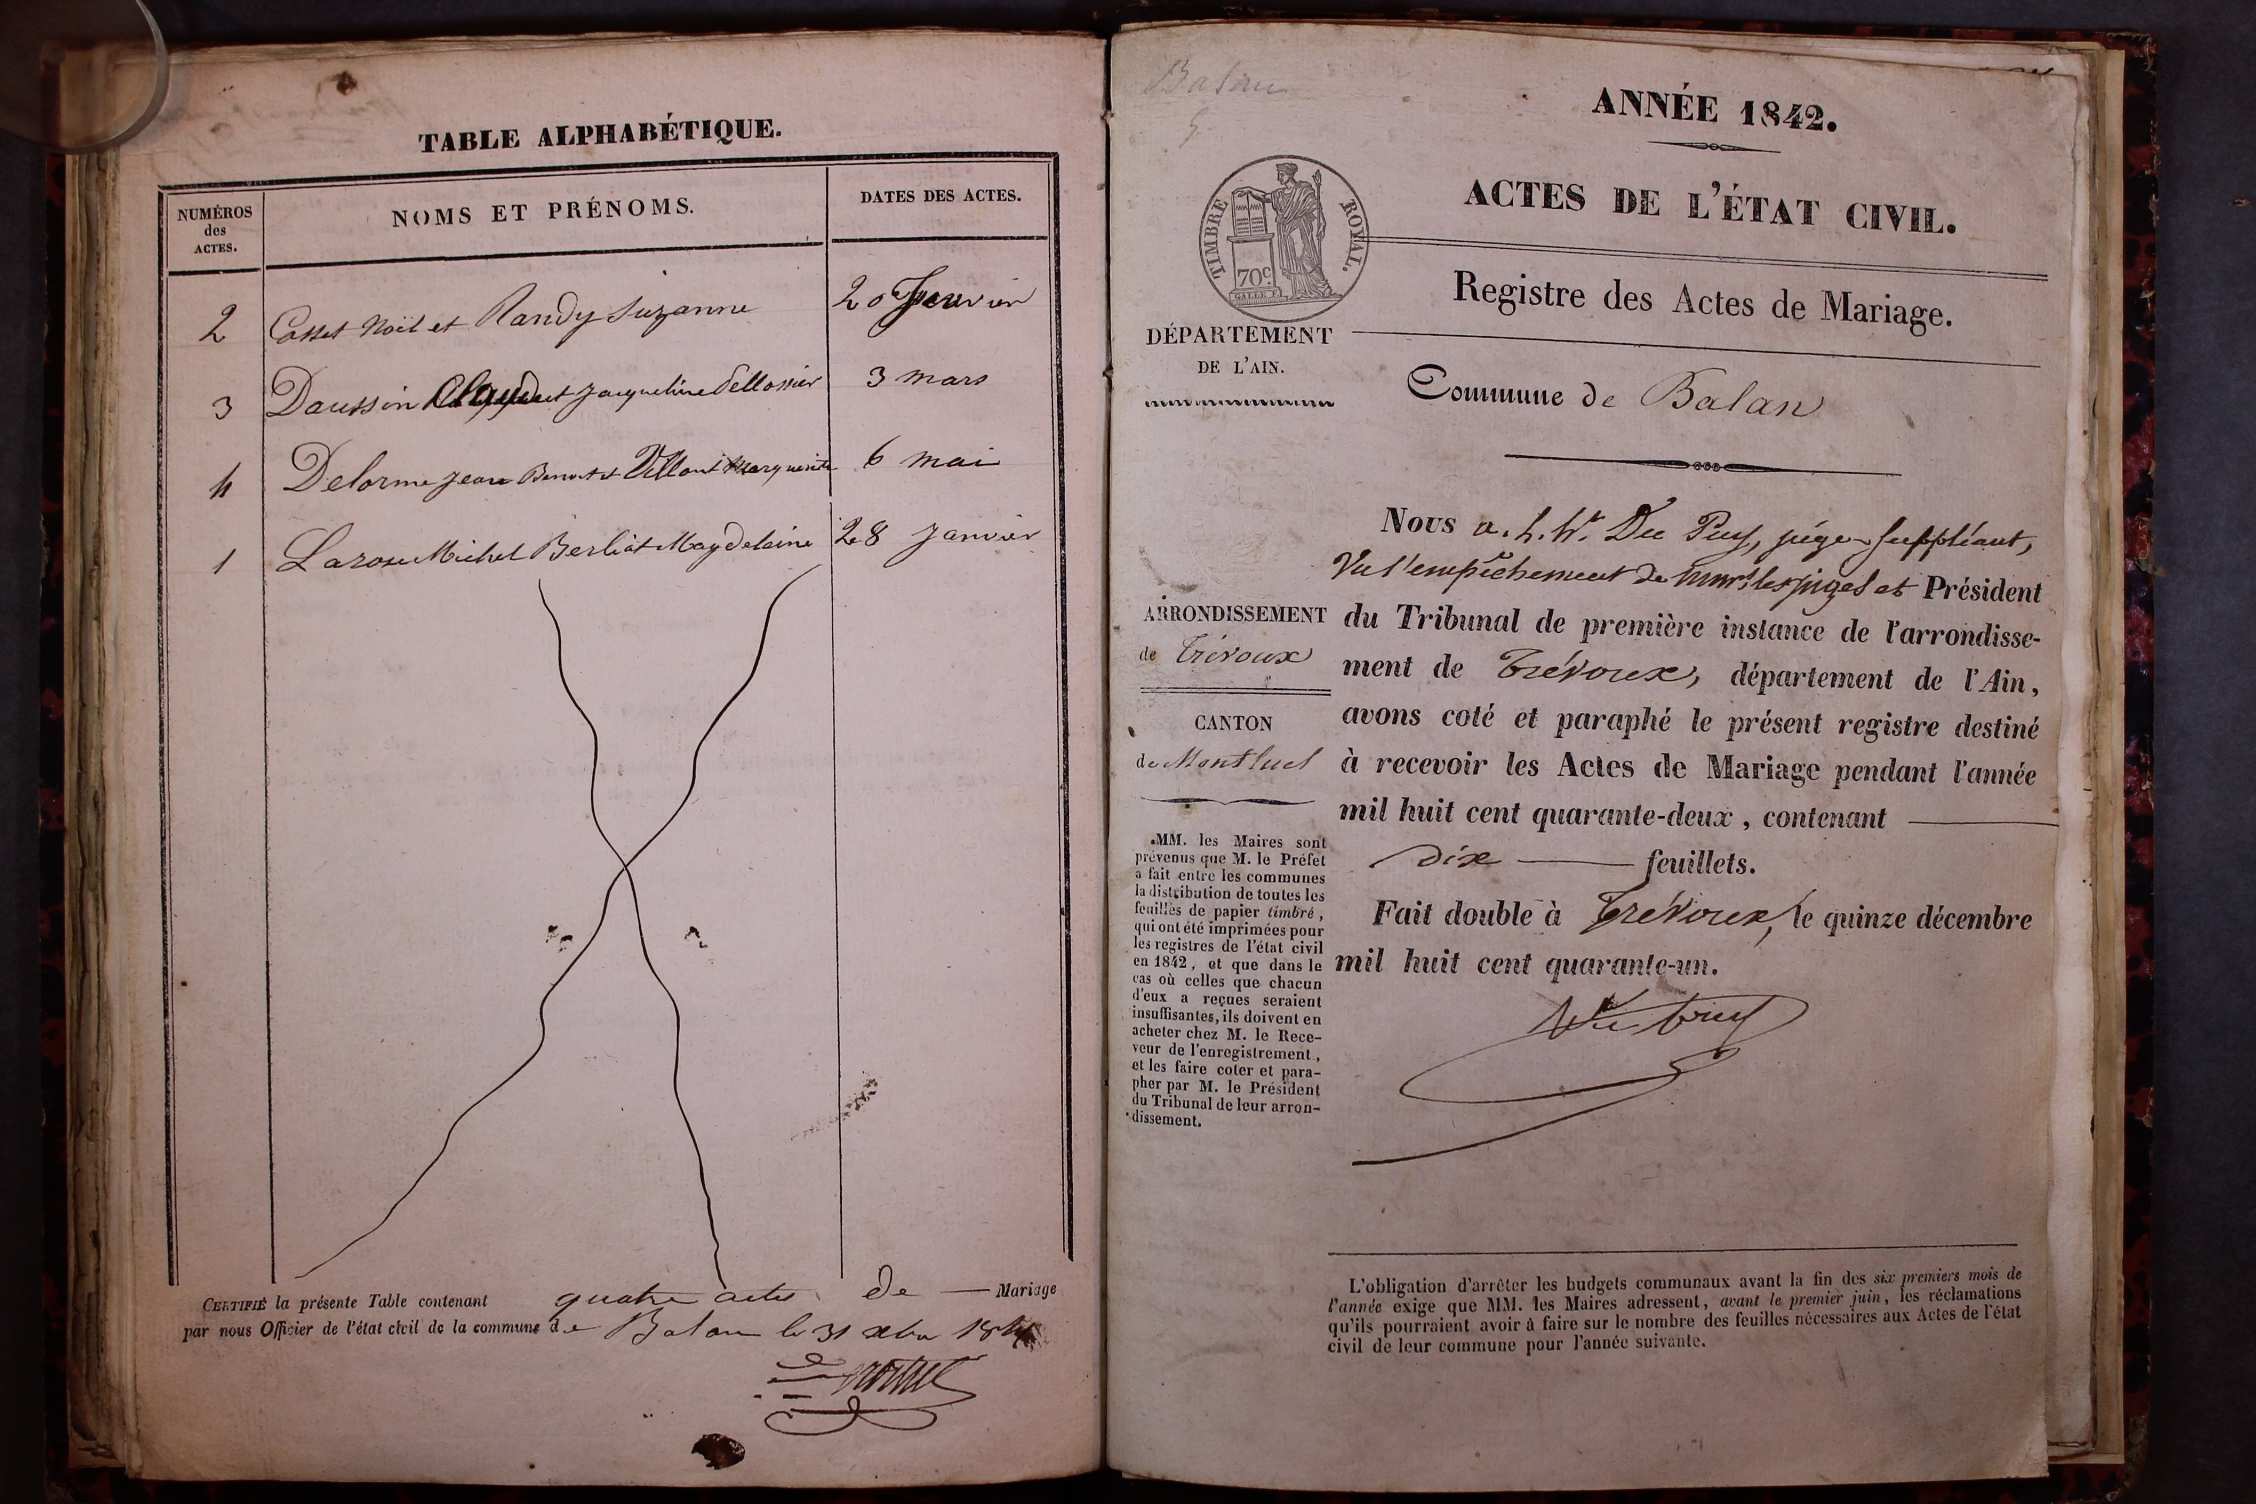 TABLE ALPHABÉTIQUE.
NUMÉROS
des
ACTES.
NOMS ET PRÉNOMS.
DATES DES ACTES.
2 Cosset Noël et Randy Suzanne 20 Janvier
3 Daussin Claude et Jacqueline 3 mars
4 Delorme Jean Benoit et Marguerite 6 mai
1 Larose Michel Berliat Magdelaine 28 Janvier
CERTIFIÉ la présente Table contenant quatre actes de — Mariage
par nous Officier de l'état civil de la commune de Balan le 31 xbre
Balan
ANNÉE 1842.
ACTES DE L'ÉTAT CIVIL.
TIMBRE ROYAL.
70c
Registre des Actes de Mariage.
DÉPARTEMENT
DE L'AIN.
Commune de Balan
ARRONDISSEMENT
de Trévoux
CANTON
de Montluel
.MM. les Maires sont
prévenus que M. le Préfet
a fait entre les communes
la distribution de toutes les
feuilles de papier timbré,
qui ont été imprimées pour
les registres de l'état civil
en 1842, et que dans le
cas où celles que chacun
d'eux a reçues seraient
insuffisantes, ils doivent en
acheter chez M. le Rece-
veur de l'enregistrement,
et les faire coter et para-
pher par M. le Président
du Tribunal de leur arron-
dissement.
Nous a. h. Du Puy, juge suppléant,
Vu l'empêchement de les juges et Président
du Tribunal de première instance de l'arrondisse-
ment de Trévoux, département de l'Ain,
avons coté et paraphé le présent registre destiné
à recevoir les Actes de Mariage pendant l'année
mil huit cent quarante-deux, contenant
dix — feuillets.
Fait double à Trévoux, le quinze décembre
mil huit cent quarante-un.
L'obligation d'arrêter les budgets communaux avant la fin des six premiers mois de
l'année exige que MM. les Maires adressent, avant le premier juin, les réclamations
qu'ils pourraient avoir à faire sur le nombre des feuilles nécessaires aux Actes de l'état
civil de leur commune pour l'année suivante.